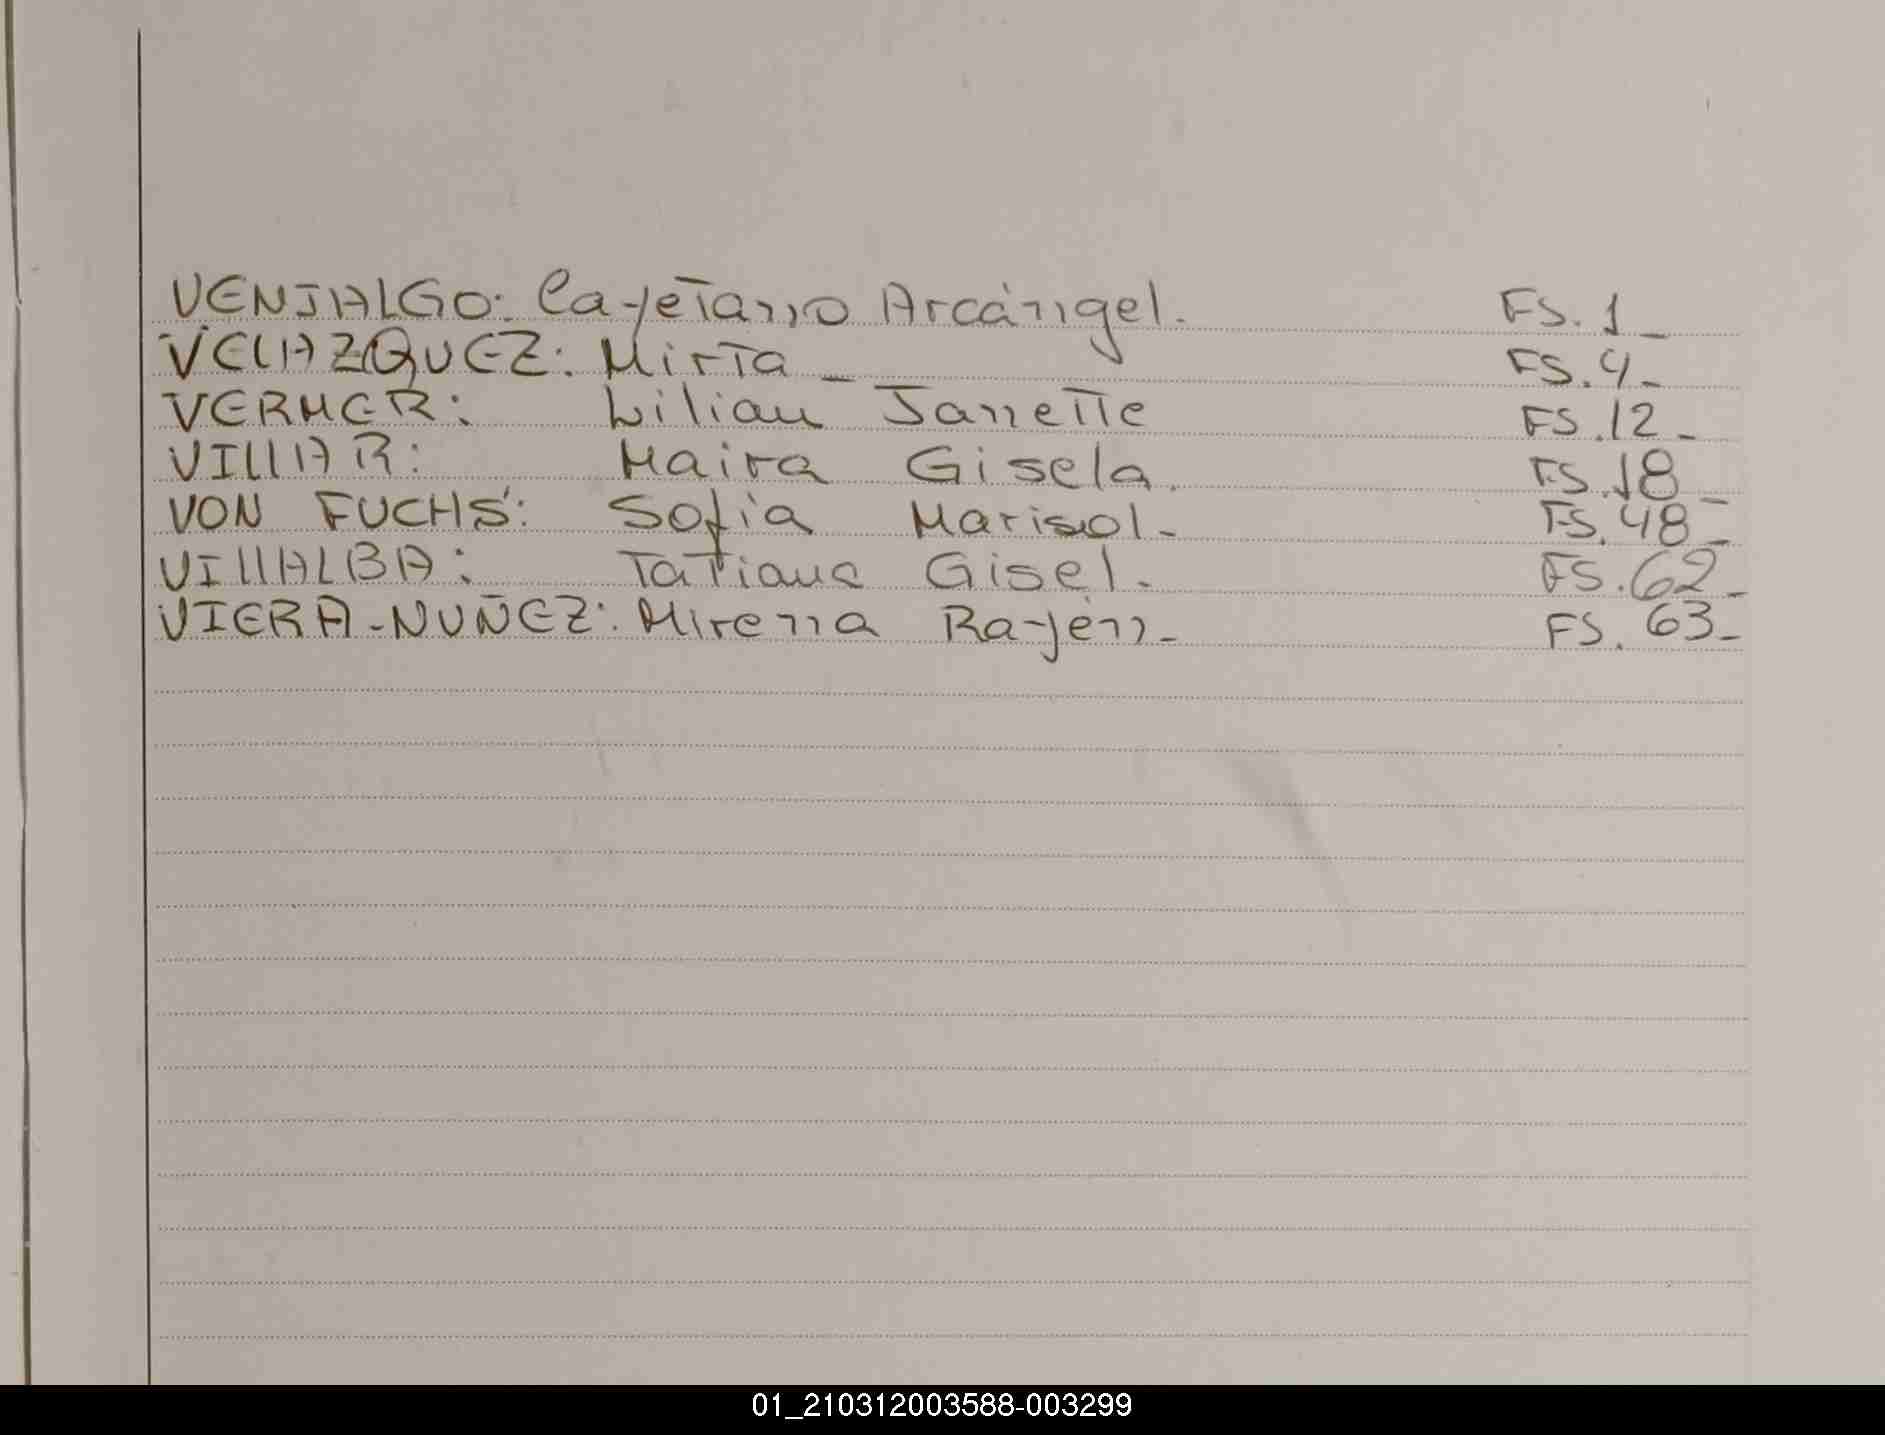 VENIALGO: Cayetano Arcángel. FS. 1_
VELAZQUEZ: Mirta_ FS. 4_
VERMER: Lilian Janette FS. 12_
VILLAR: Maira Gisela. FS. 18_
VON FUCHS: Sofia Marisol_ FS. 48_
VILLALBA: Tatiana Gisel. FS. 62_
VIERA-NUÑEZ: Mirena Rayén_ FS. 63_
01_210312003588-003299